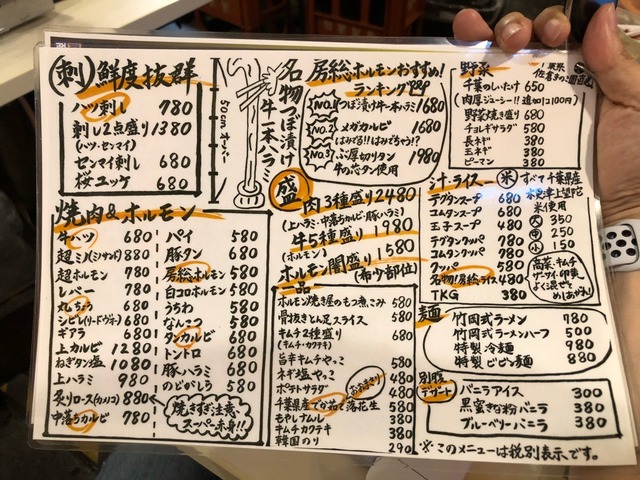 刺 鮮度抜群
ハツ刺し 780
刺し2点盛り 1380
(ハツ・センマイ)
センマイ刺し 680
桜ユッケ 680
50cmオーバー
名物つぼ漬け
牛一本ハラミ
房総ホルモンおすすめ!
ランキング
No.1 つぼ漬け牛一本ハラミ 1680
No.2 メガカルビ 1680
はみでる!!はみでちゃう!?
No.3 ぶ厚切りタン 1980
牛の芯タン使用
野菜
千葉のしいたけ 650
(肉厚ジューシー!! 追加1コ100円)
野菜焼き盛り 680
チョレギサラダ 580
長ネギ 380
玉ネギ 380
ピーマン 380
焼肉&ホルモン
牛ハツ 680
超ミノ(ミノサンド) 880
超ホルモン 780
レバー 780
丸ちょう 680
シビレ(リードヴォー) 680
ギアラ 680
上カルビ 1280
ねぎタン塩 1080
上ハラミ 980
炙りロース(カメノコ) 880
中落ちカルビ 780
パイ 580
豚タン 680
房総ホルモン 580
白コロホルモン 580
うちわ 580
なんこつ 580
タンカルビ 680
トントロ 680
豚ハラミ 680
のどがしら 580
焼きすぎ注意、
スーパー赤身!!
盛
肉3種盛り 2480
(上ハラミ・中落ちカルビ・豚ハラミ)
牛5種盛り 1980
(ホルモン)
ホルモン闇盛り 1580
(希少部位)
一品
ホルモン焼き屋のもつ煮こみ 580
骨抜きとん足スライス 580
キムチ2種盛り 680
(キムチ・カクテキ)
旨辛キムチやっこ 580
ネギ塩やっこ 480
ポテトサラダ 480
千葉県産でかゆで落花生 580
もやしナムル 380
キムチカクテキ 380
韓国のり 290
汁・ライス 米 すべて千葉県産
木更津上望陀
米使用
テグタンスープ 680
コムタンスープ 580
玉子スープ 480
テグタンクッパ 780
コムタンクッパ 680
クッパ 580
名物!房総ライス 480
TKG 380
大 350
中 250
小 150
麺
竹岡式ラーメン 780
竹岡式ラーメンハーフ 500
特製冷麺 980
特製ビビン麺 880
別腹
デザート
バニラアイス 300
黒蜜きな粉バニラ 380
ブルーベリーバニラ 380
※このメニューは税別表示です。